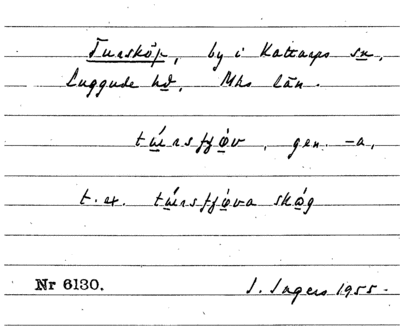 Tursköp, by i Kattarps sn,
Luggude hd, Mhs län.
tú̲rsfjø̲v, gen. -a,
t.ex. tú̲rsfjø̲va skó̲g
Nr 6130. J. Ingers 1955-